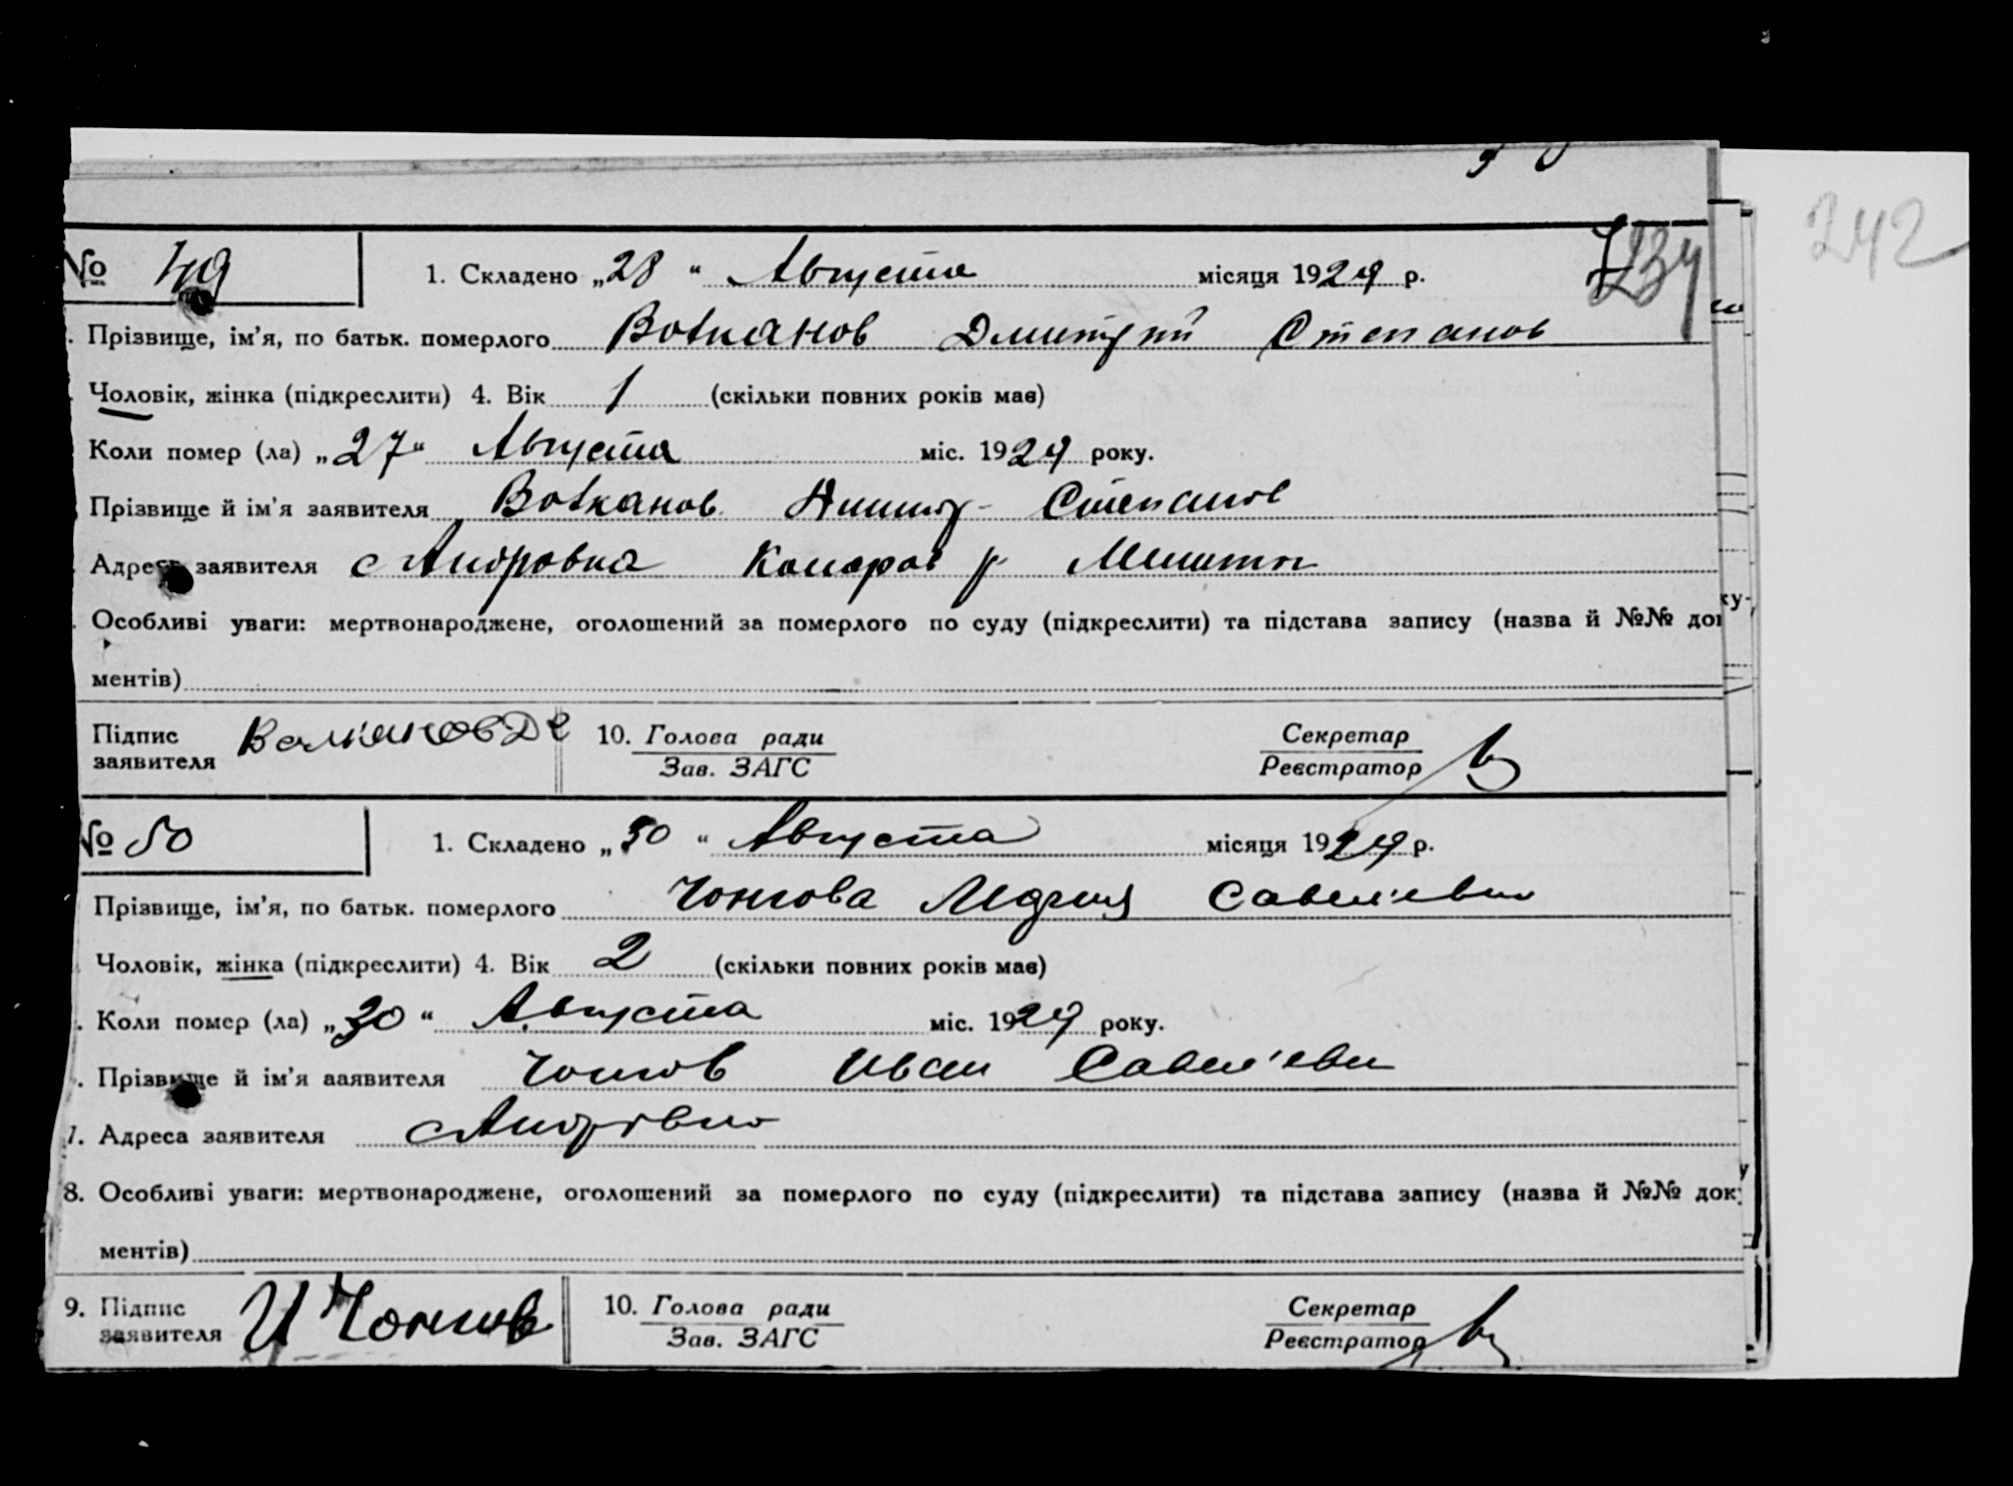 242
234
№ 49 1. Складено „28“ Августа місяця 1929 р.
Прізвище, ім'я, по батьк. померлого Волканов Дмитрий Степанов
Чоловік, жінка (підкреслити) 4. Вік 1 (скільки повних років має)
Коли помер (ла) „27“ Августа міс. 1929 року.
Прізвище й ім'я заявителя Волканов Степанов
Адреса заявителя с Андровка р
Особливі уваги: мертвонароджене, оголошений за померлого по суду (підкреслити) та підстава запису (назва й №№ док
ментів)
Підпис заявителя 10. Голова ради Секретар
Зав. ЗАГС Реєстратор
№ 50 1. Складено „30“ Августа місяця 1929 р.
Прізвище, ім'я, по батьк. померлого Чонгова Савел'евна
Чоловік, жінка (підкреслити) 4. Вік 2 (скільки повних років має)
Коли помер (ла) „30“ Августа міс. 1929 року.
Прізвище й ім'я заявителя Чонгов Иван Савел'еви
7. Адреса заявителя с Андрівка
8. Особливі уваги: мертвонароджене, оголошений за померлого по суду (підкреслити) та підстава запису (назва й №№ доку
ментів)
9. Підпис заявителя И Чонгов 10. Голова ради Секретар
Зав. ЗАГС Реєстратор